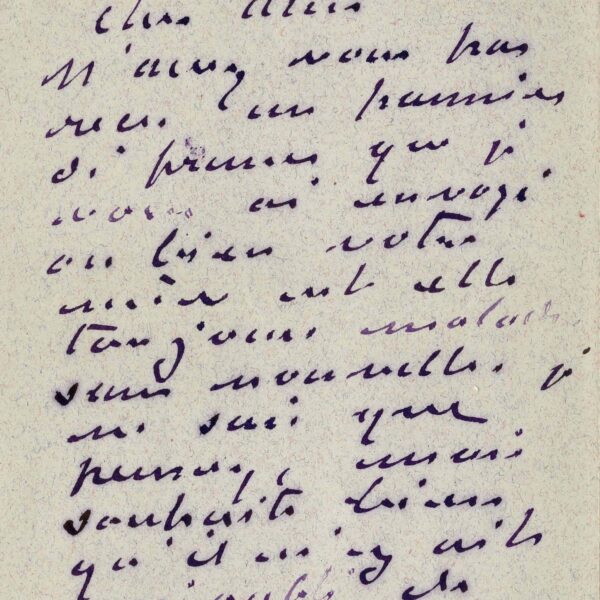 cher ami
N'avez vous pas
recu un pannier
de prunes que je
vous ai envoyé
ou bien votre
mère est elle
toujours malade
sans nouvelle. je
ne sais que
penser, mais
souhaite bien
qu'il n'y ait
de